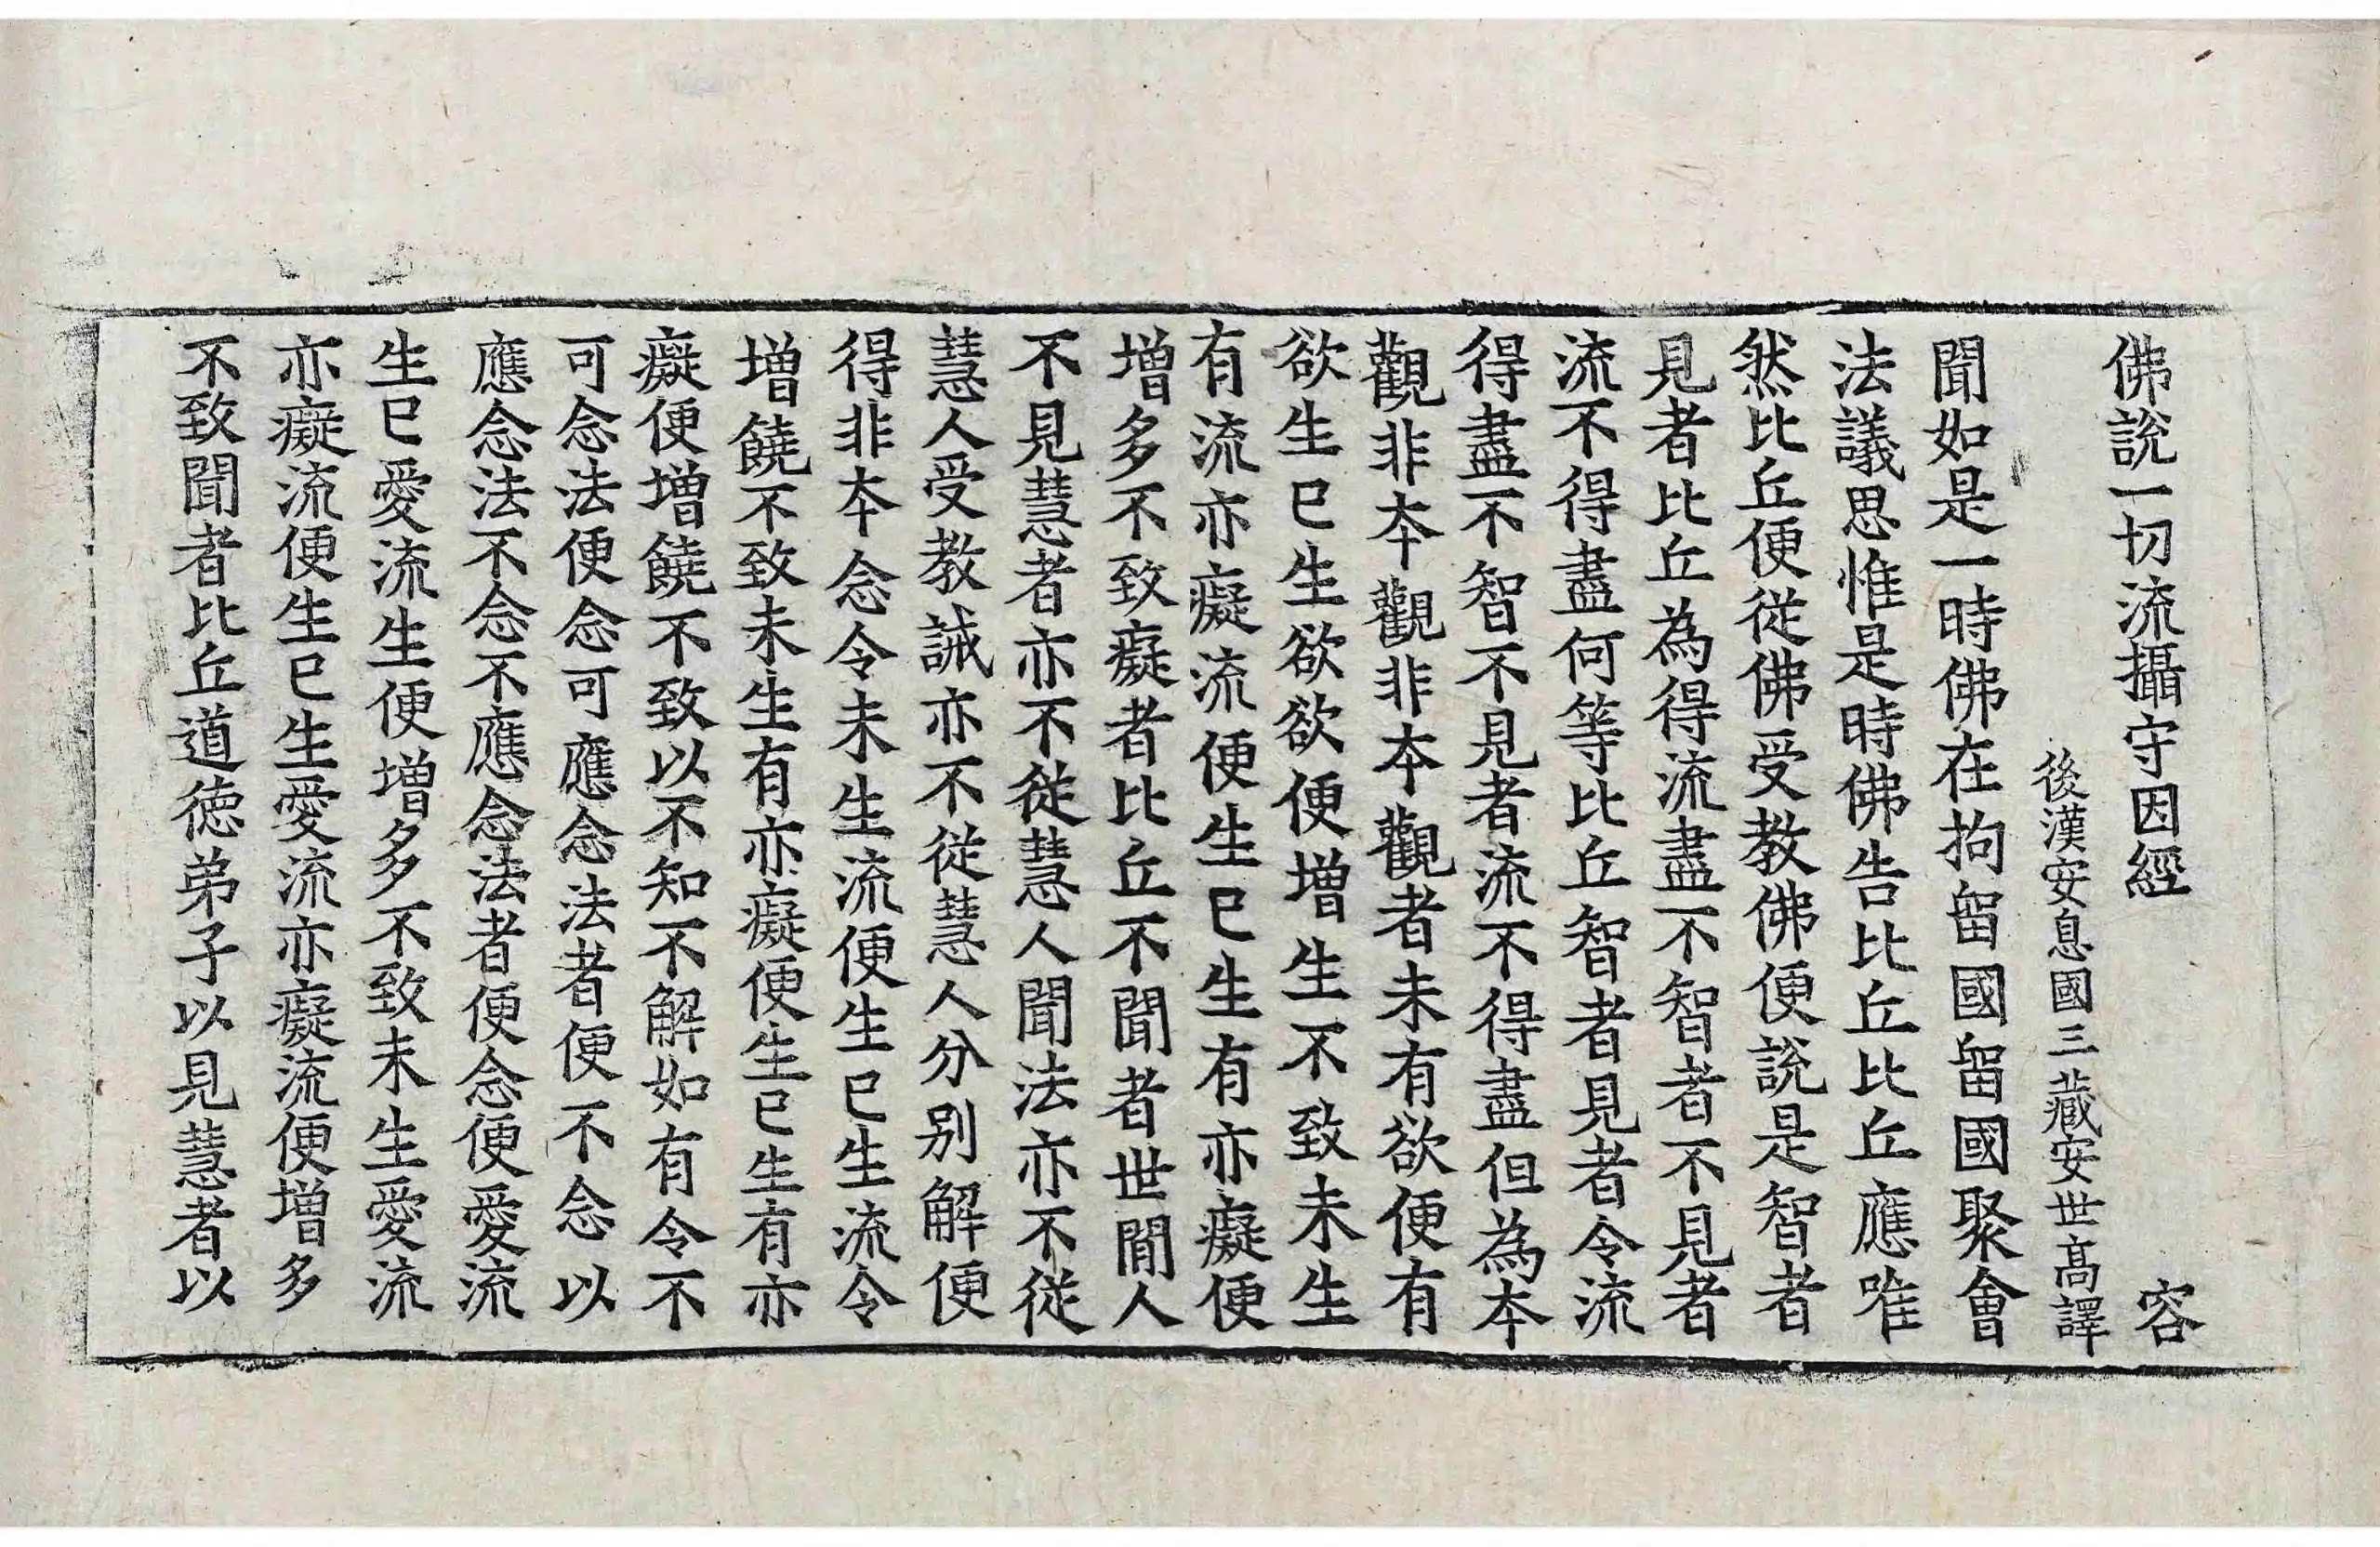 佛說一切流攝守因經 容
後漢安息國三藏安世高譯
聞如是一時佛在拘留國留國聚會
法議思惟是時佛告比丘比丘應唯
然比丘便從佛受教佛便說是智者
見者比丘為得流盡不智者不見者
流不得盡何等比丘智者見者令流
得盡不智不見者流不得盡但為本
觀非本觀非本觀者未有欲便有
欲生已生欲欲便增生不致未生
有流亦癡流便生已生有亦癡便
增多不致癡者比丘不聞者世間人
不見慧者亦不從慧人聞法亦不從
慧人受教誡亦不從慧人分別解便
得非本念令未生流便生已生流令
增饒不致未生有亦癡便生已生有亦
癡便增饒不致以不知不解如有令不
可念法便念可應念法者便不念以
應念法不念不應念法者便念便愛流
生已愛流生便增多不致未生愛流
亦癡流便生已生愛流亦癡流便增多
不致聞者比丘道德弟子以見慧者以